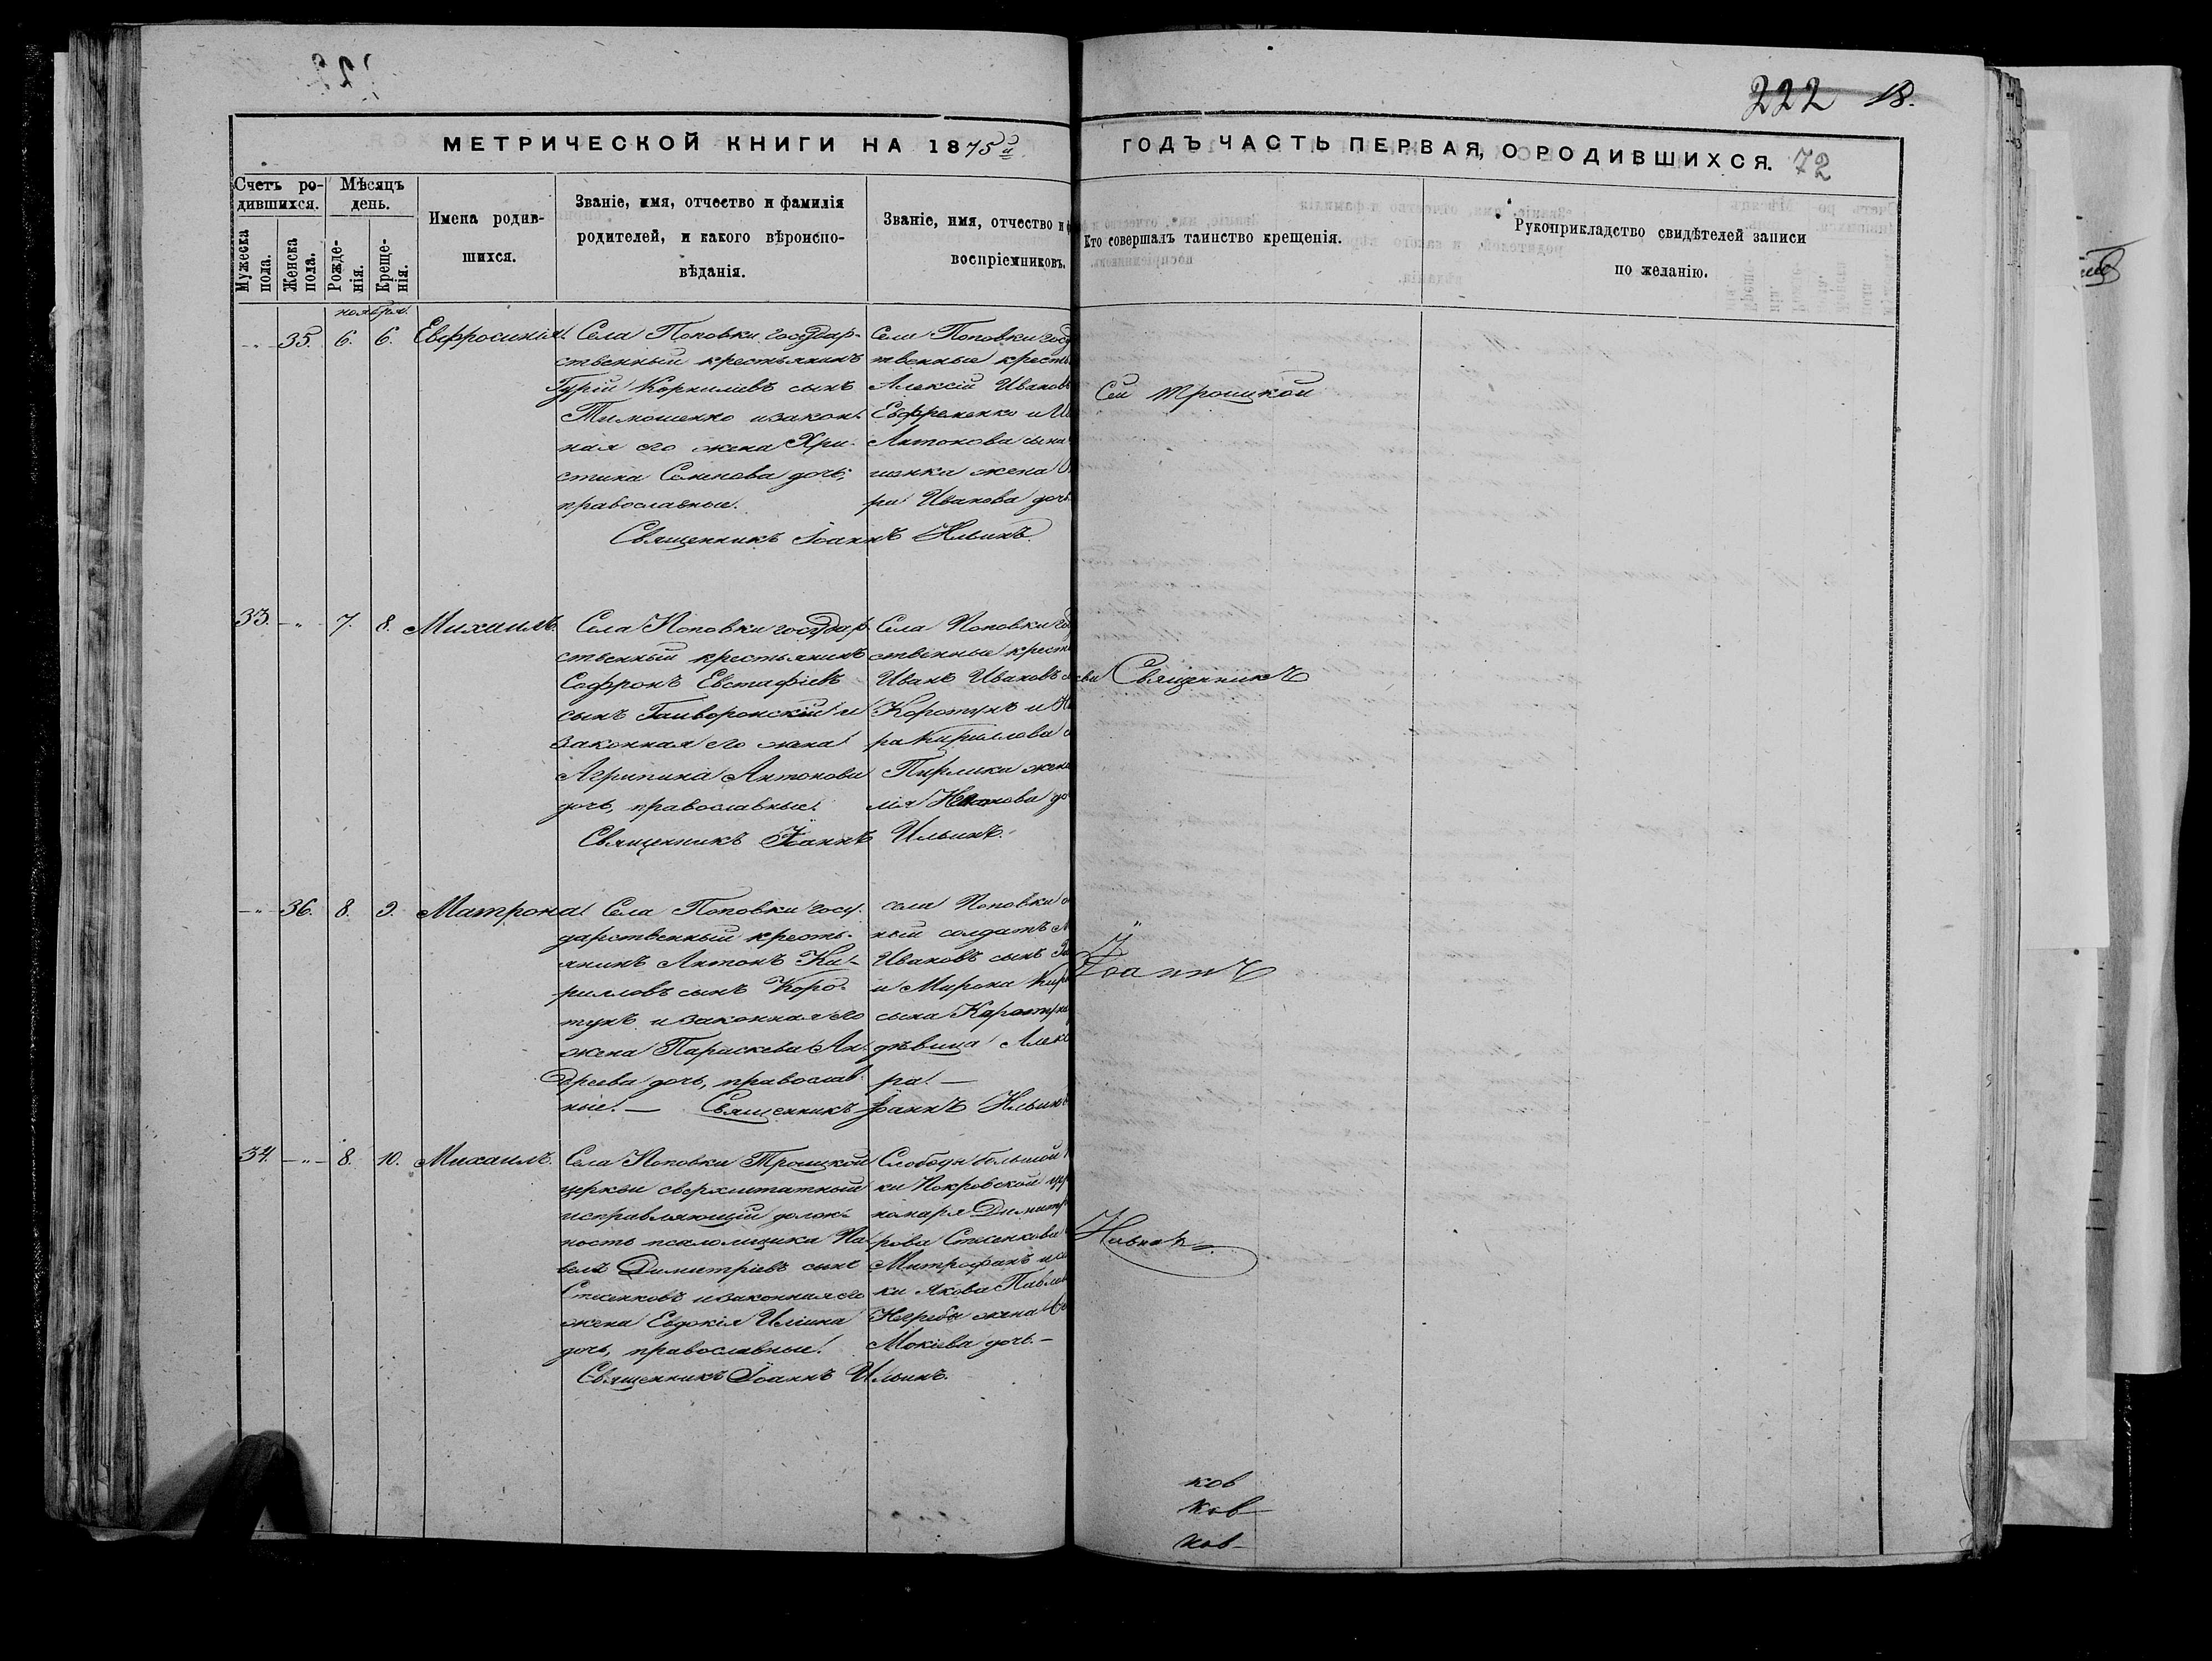 222 18.
МЕТРИЧЕСКОЙ КНИГИ НА 1875й ГОДЪ ЧАСТЬ ПЕРВАЯ, О РОДИВШИХСЯ. 72
Счетъ ро-
дившихся.
Мужеска
пола.
Женска
пола.
Мѣсяцъ
день.
Рожде-
нія.
Креще-
нія.
Имена родив-
шихся.
Званіе, имя, отчество и фамилія
родителей, и какого вѣроиспо-
вѣданія.
Званіе, имя, отчество и
воспріемниковъ.
Кто совершалъ таинство крещенія.
Рукоприкладство свидѣтелей записи
по желанію.
ноября.
35. 6. 6. Евфросинія
Села Поповки государ-
ственный крестьянинъ
Гурій Корниліевъ сынъ
Тимошенко и закон-
ная его жена Хри-
стина Семенова дочь,
православные.
Села Поповки госу
твенные кресть
Алексій Ивановъ
Евфременко и
Антонова сына
женка жена
ра Иванова дочь
Священникъ Іоаннъ Ильинъ.
33. 7. 8. Михаилъ.
Села Поповки государ-
ственный крестьянинъ
Софронъ Евстафіевъ
сынъ Гаиворонскій и
законная его жена
Агрипина Антонова
дочь, православные.
Села Поповки го
ственные крест
Иванъ Ивановъ
Коротунъ и
ра Кириллова
Пирлика жена
лія Иванова до
Священникъ Іоаннъ Ильинъ.
36. 8. 9. Матрона
Села Поповки госу-
дарственный кресть-
янинъ Антонъ Ки-
рилловъ сынъ Коро-
тунъ и законная его
жена Параскева Ан-
дреева дочь, православ-
ные. —
села Поповки
ный солдатъ
Ивановъ сынъ
и Мирона Кир
сына Коротуна
дѣвица Алекс
ра. —
Священникъ Іоаннъ Ильинъ
34. 8. 10. Михаилъ.
Села Поповки Троицкой
церкви сверхштатный
исправляющій долж-
ность псаломщика Па-
велъ Димитріевъ сынъ
Стисенковъ и законная его
жена Евдокія Иліина
дочь, православные.
Слободы большой
ки Покровской
номаря Димитр
рова
Митрофанъ и
ки Якова Павлов
Негреба жена
Мокіева дочь. —
Священникъ Іоаннъ Ильинъ.
Сей Троицкой
Священникъ
Іоаннъ
Ильинъ
ков
ков
ков